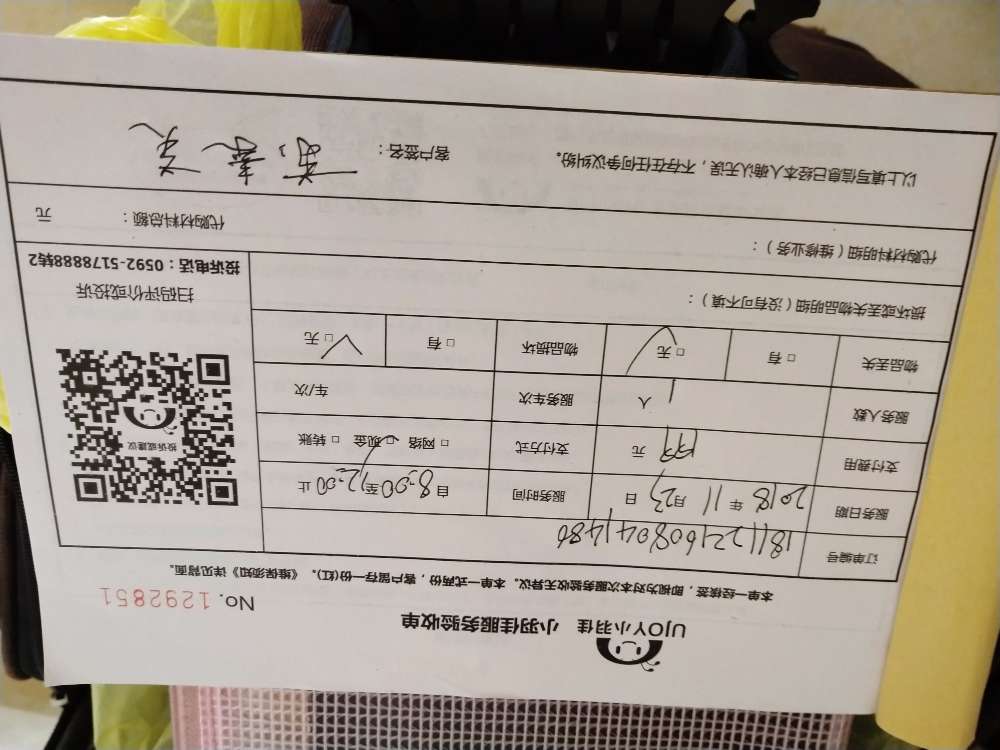 UJOY小羽佳 小羽佳服务验收单
No. 1292851
本单一经核签，即视为对本次服务验收无异议。本单一式两份，客户留存一份(红)。《维保须知》详见背面。
订单编号
服务日期 2018 年 11 月 23 日 服务时间 自 8:00 至 12:00 止
支付费用 元 支付方式 □ 网络 □ 现金 □ 转账
服务人数 1 人 服务车次 车/次
物品丢失 □ 有 □ 无 物品损坏 □ 有 □ 无
投诉或建议
扫码评价或投诉
投诉电话：0592-5178888转2
损坏或丢失物品明细（没有可不填）：
代购材料明细（维修业务）：
代购材料总额： 元
以上填写信息已经本人确认无误，不存在任何争议纠纷。 客户签名：